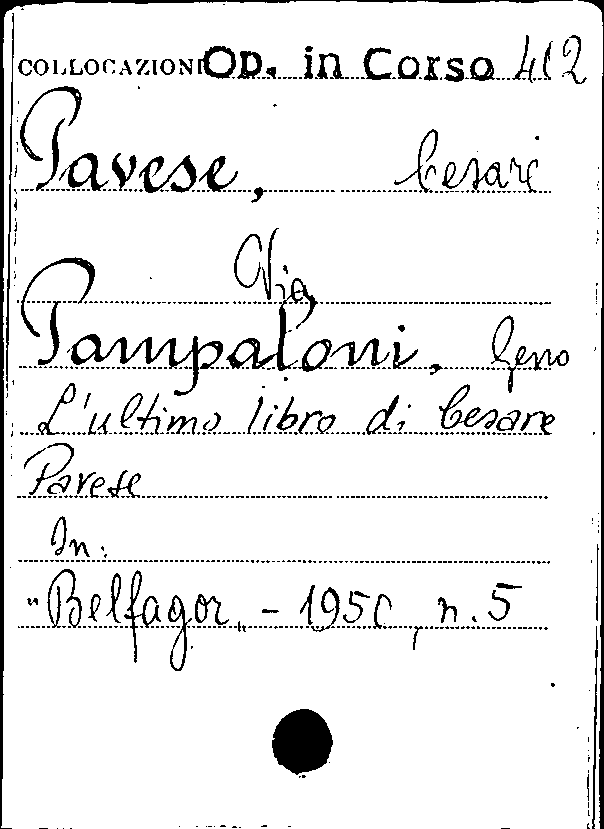 COLLOCAZIONE OD. in Corso 412
Pavese, Cesare
Via
Pampaloni, Geno
L'ultimo libro di Cesare
Pavese
In:
"Belfagor" - 1950, n. 5